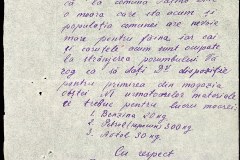 că la comuna
o moară care stă acum și
populația comunei are nevoie
mare pentru făină iar cai
și căruțele acum sunt ocupate
la strângerea porumbului Vă
rog ca să dați dispoziție
pentru primirea din magazia
materiale
ce trebuie pentru lucru morei
1. Benzină 20 kg
2. Petrol 300 kg
3. Avtol 30 kg
Cu respect